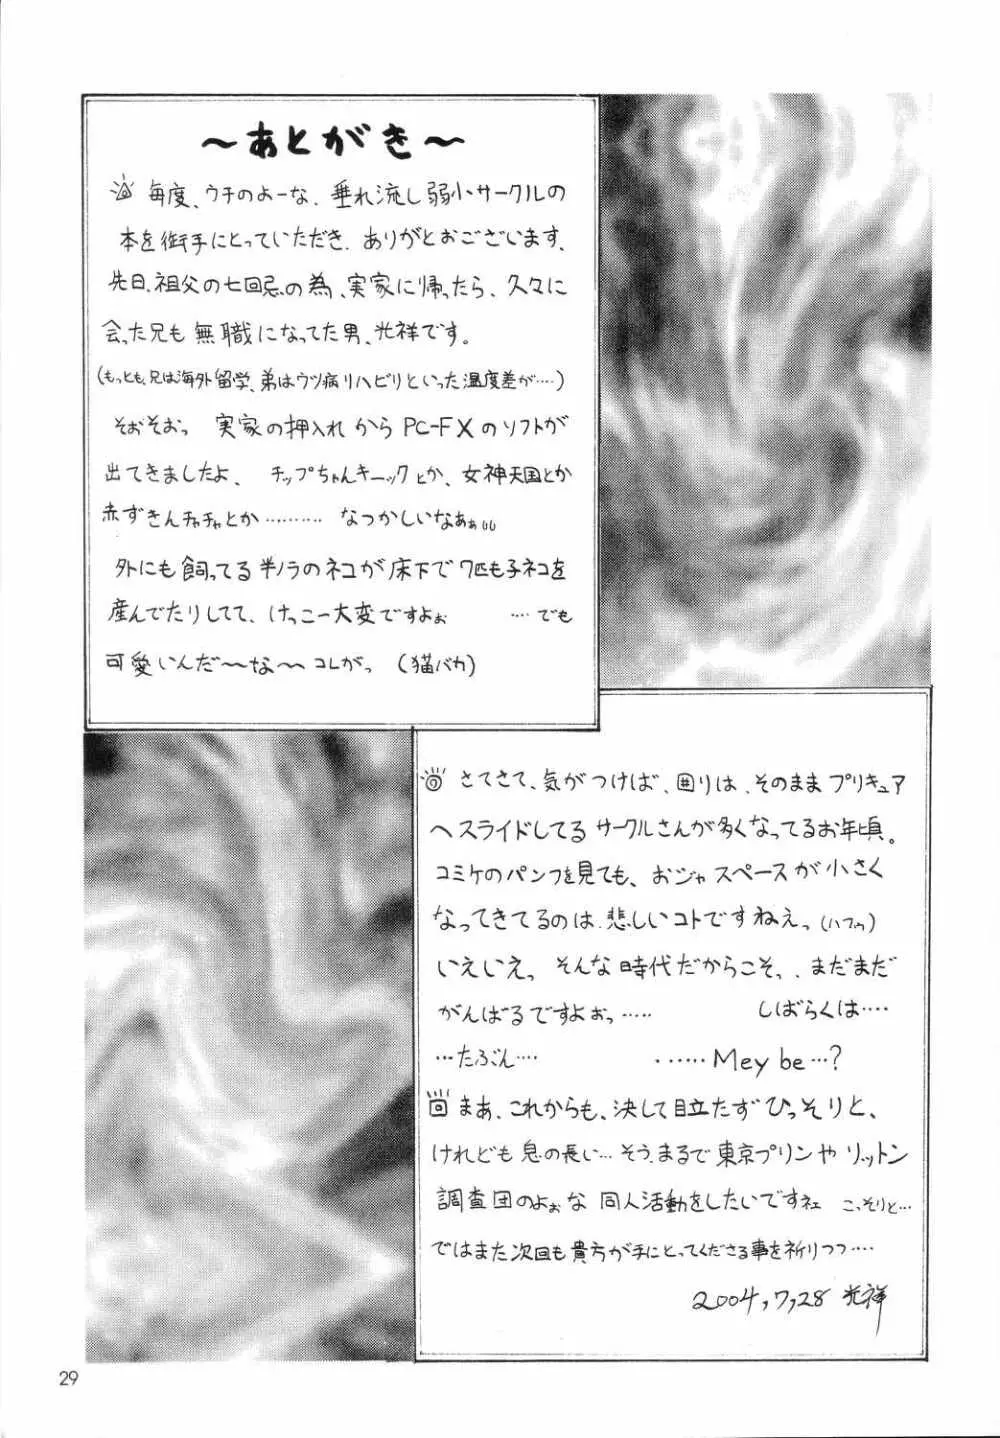 ～あとがき～
毎度、ウチのよーな、垂れ流し弱小サークルの
本を御手にとっていただき、ありがとおございます、
先日、祖父の七回忌の為、実家に帰ったら、久々に
会った兄も無職になってた男、光祥です。
(もっとも、兄は海外留学、弟はウツ病リハビリといった温度差が‥‥)
そおそおっ 実家の押入れからPC-FXのソフトが
出てきましたよ、 チップちゃんキーックとか、女神天国とか
赤ずきんチャチャとか………… なつかしいなあぁ
外にも飼ってる半ノラのネコが床下で7匹も子ネコを
産んでたりしてて、けっこー大変ですよぉ ‥‥でも
可愛いんだ～な～ コレがっ (猫バカ)
さてさて、気がつけば、囲りは、そのままプリキュア
へスライドしてるサークルさんが多くなってるお年頃。
コミケのパンフを見ても、おジャスペースが小さく
なってきてるのは、悲しいコトですねえっ(ハフゥ)
いえいえっ そんな時代だからこそっ、まだまだ
がんばるですよぉっ‥‥‥ しばらくは‥‥
…たぶん‥‥ ・‥‥‥Mey be…?
まあ、これからも、決して目立たずひっそりと、
けれども息の長い…そう、まるで東京プリンやリットン
調査団のよぉな 同人活動をしたいですネェ こっそりと…
ではまた次回も貴方が手にとってくださる事を祈りつつ‥‥
2004,7,28 光祥
29